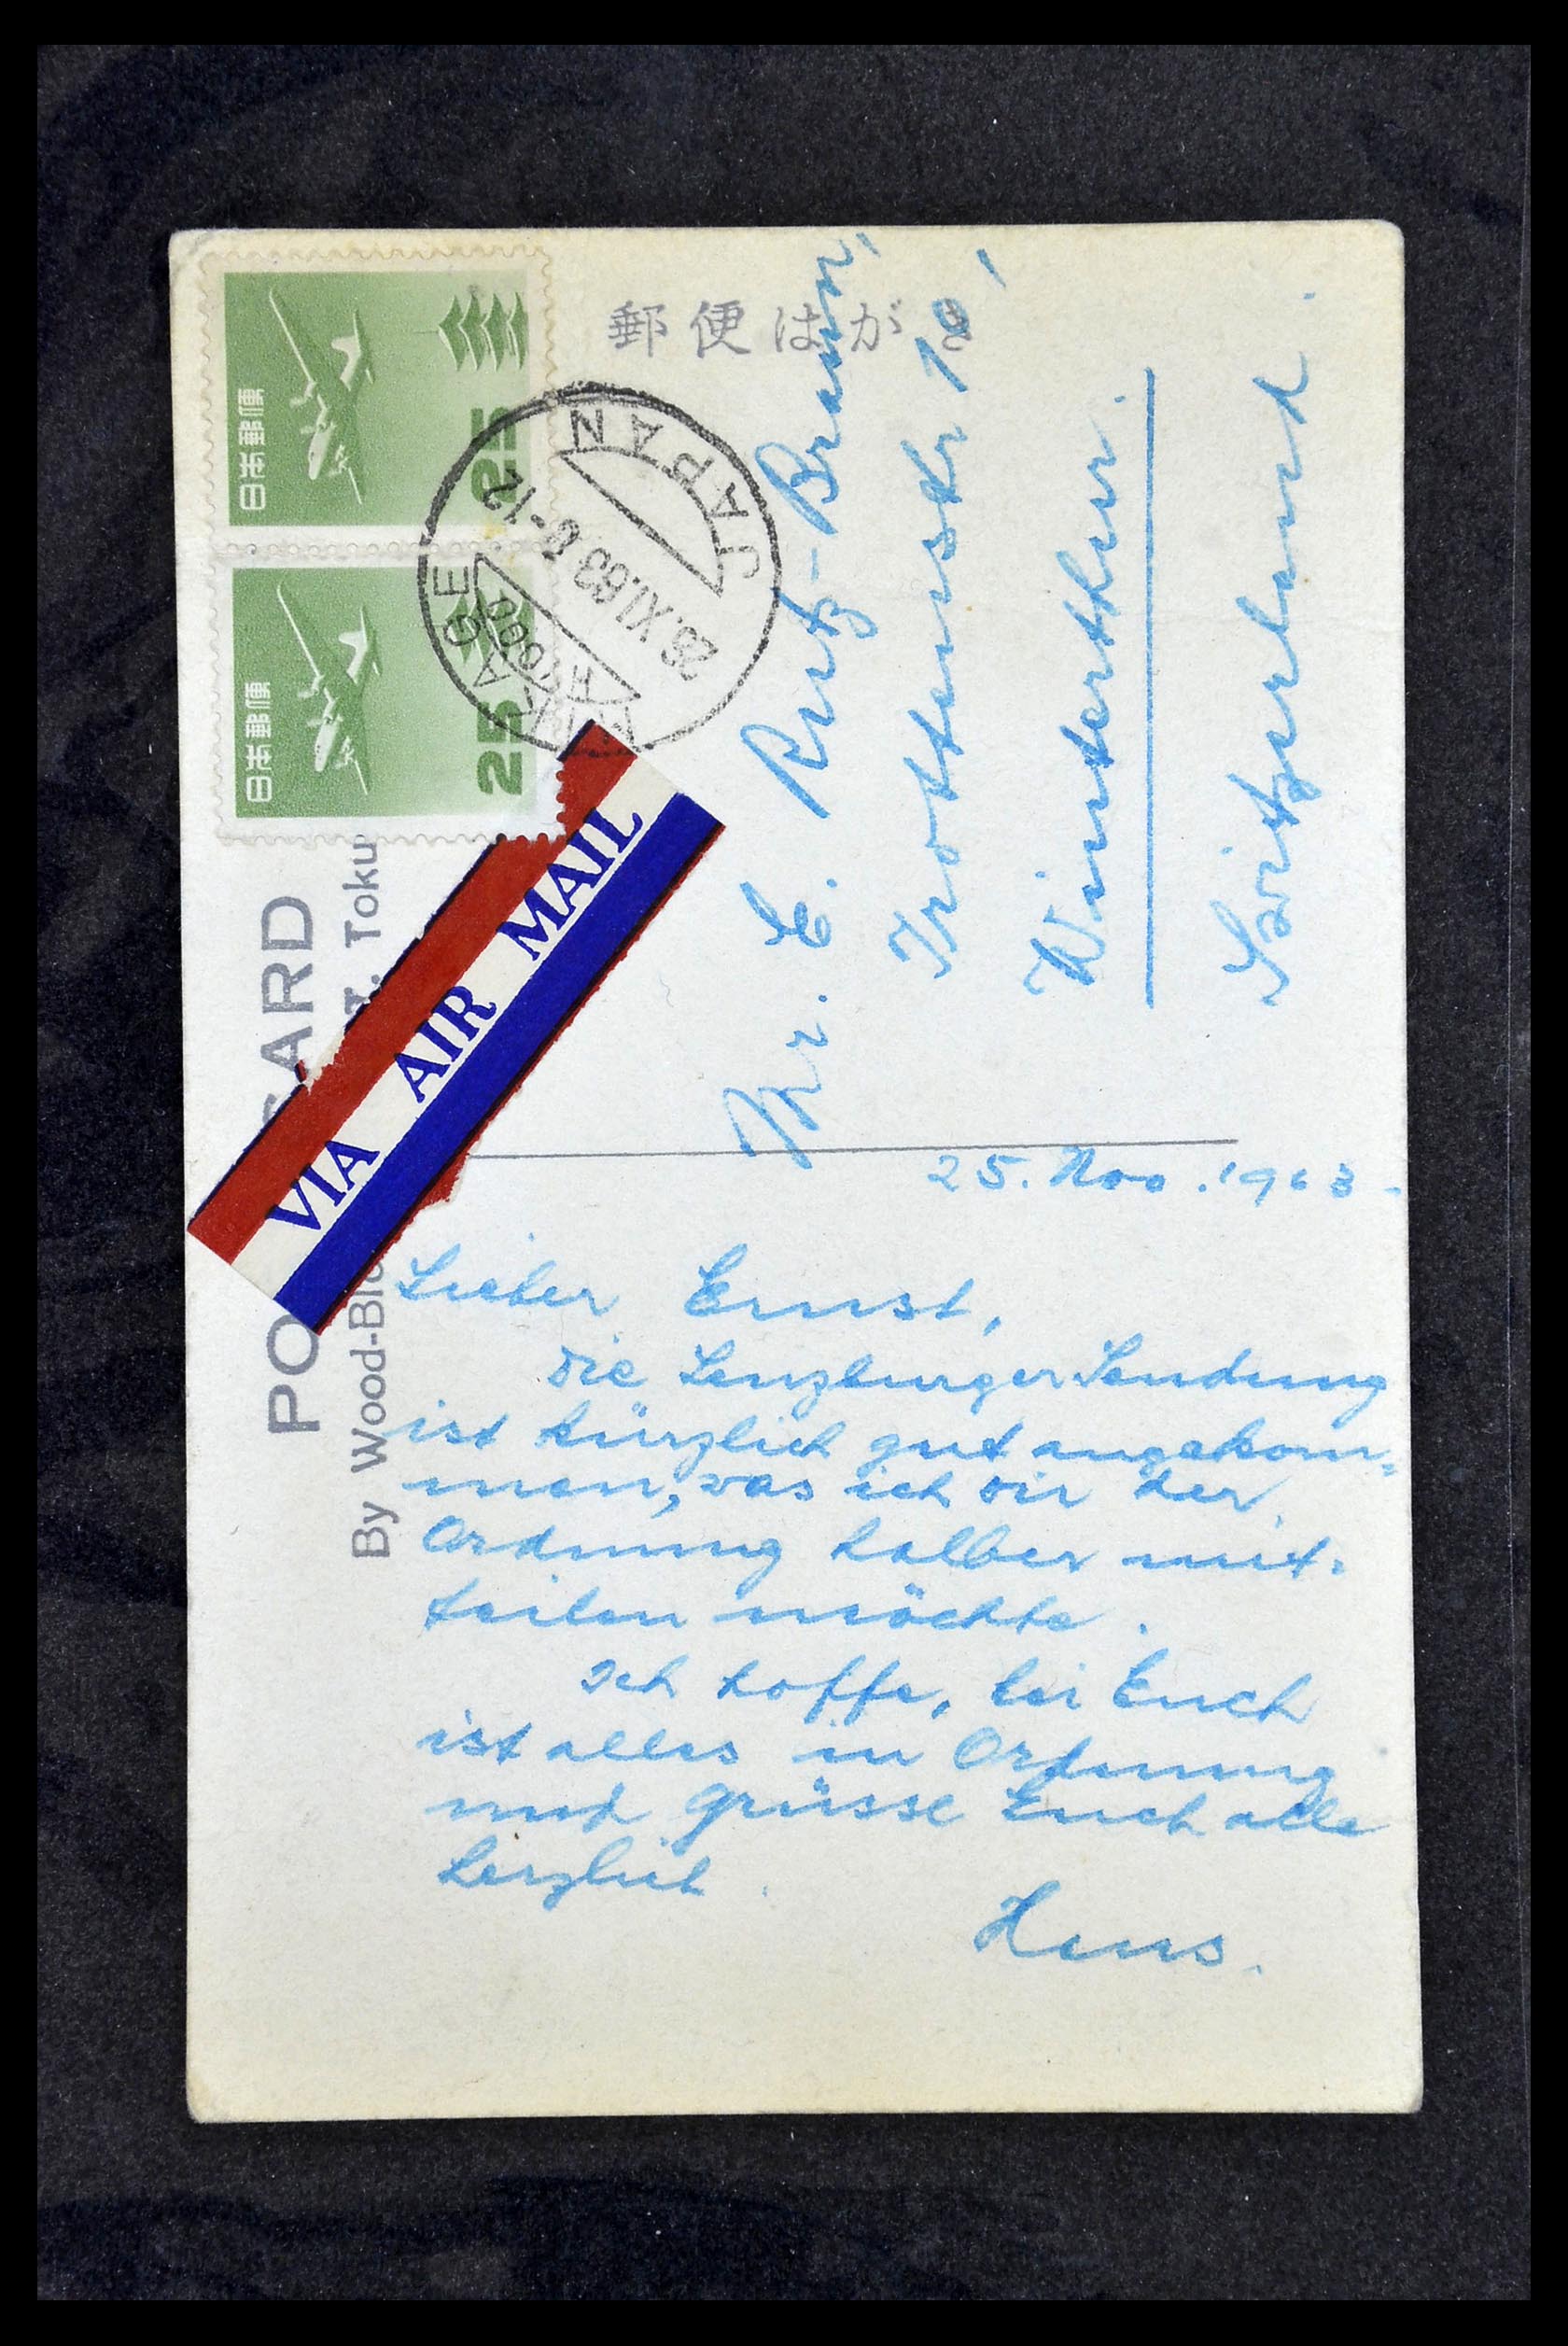 郵便はがき
日本郵便
25
日本郵便
25
JAPAN
26.XI.63 8-12
HYOGO
VIA AIR MAIL
PO CARD
By Wood-Blo T. Toku
Mr. E. Rutz-Braun,
Trottenstr 10,
Winterthur.
Switzerland.
25. Nov. 1963.
Lieber Ernst,
die Lenzburger Sendung
ist kürzlich gut angekom=
men, was ich dir der
Ordnung halber mit-
teilen möchte.
Ich hoffe, bei Euch
ist alles in Ordnung
und grüsse Euch alle
herzlich.
Hans.